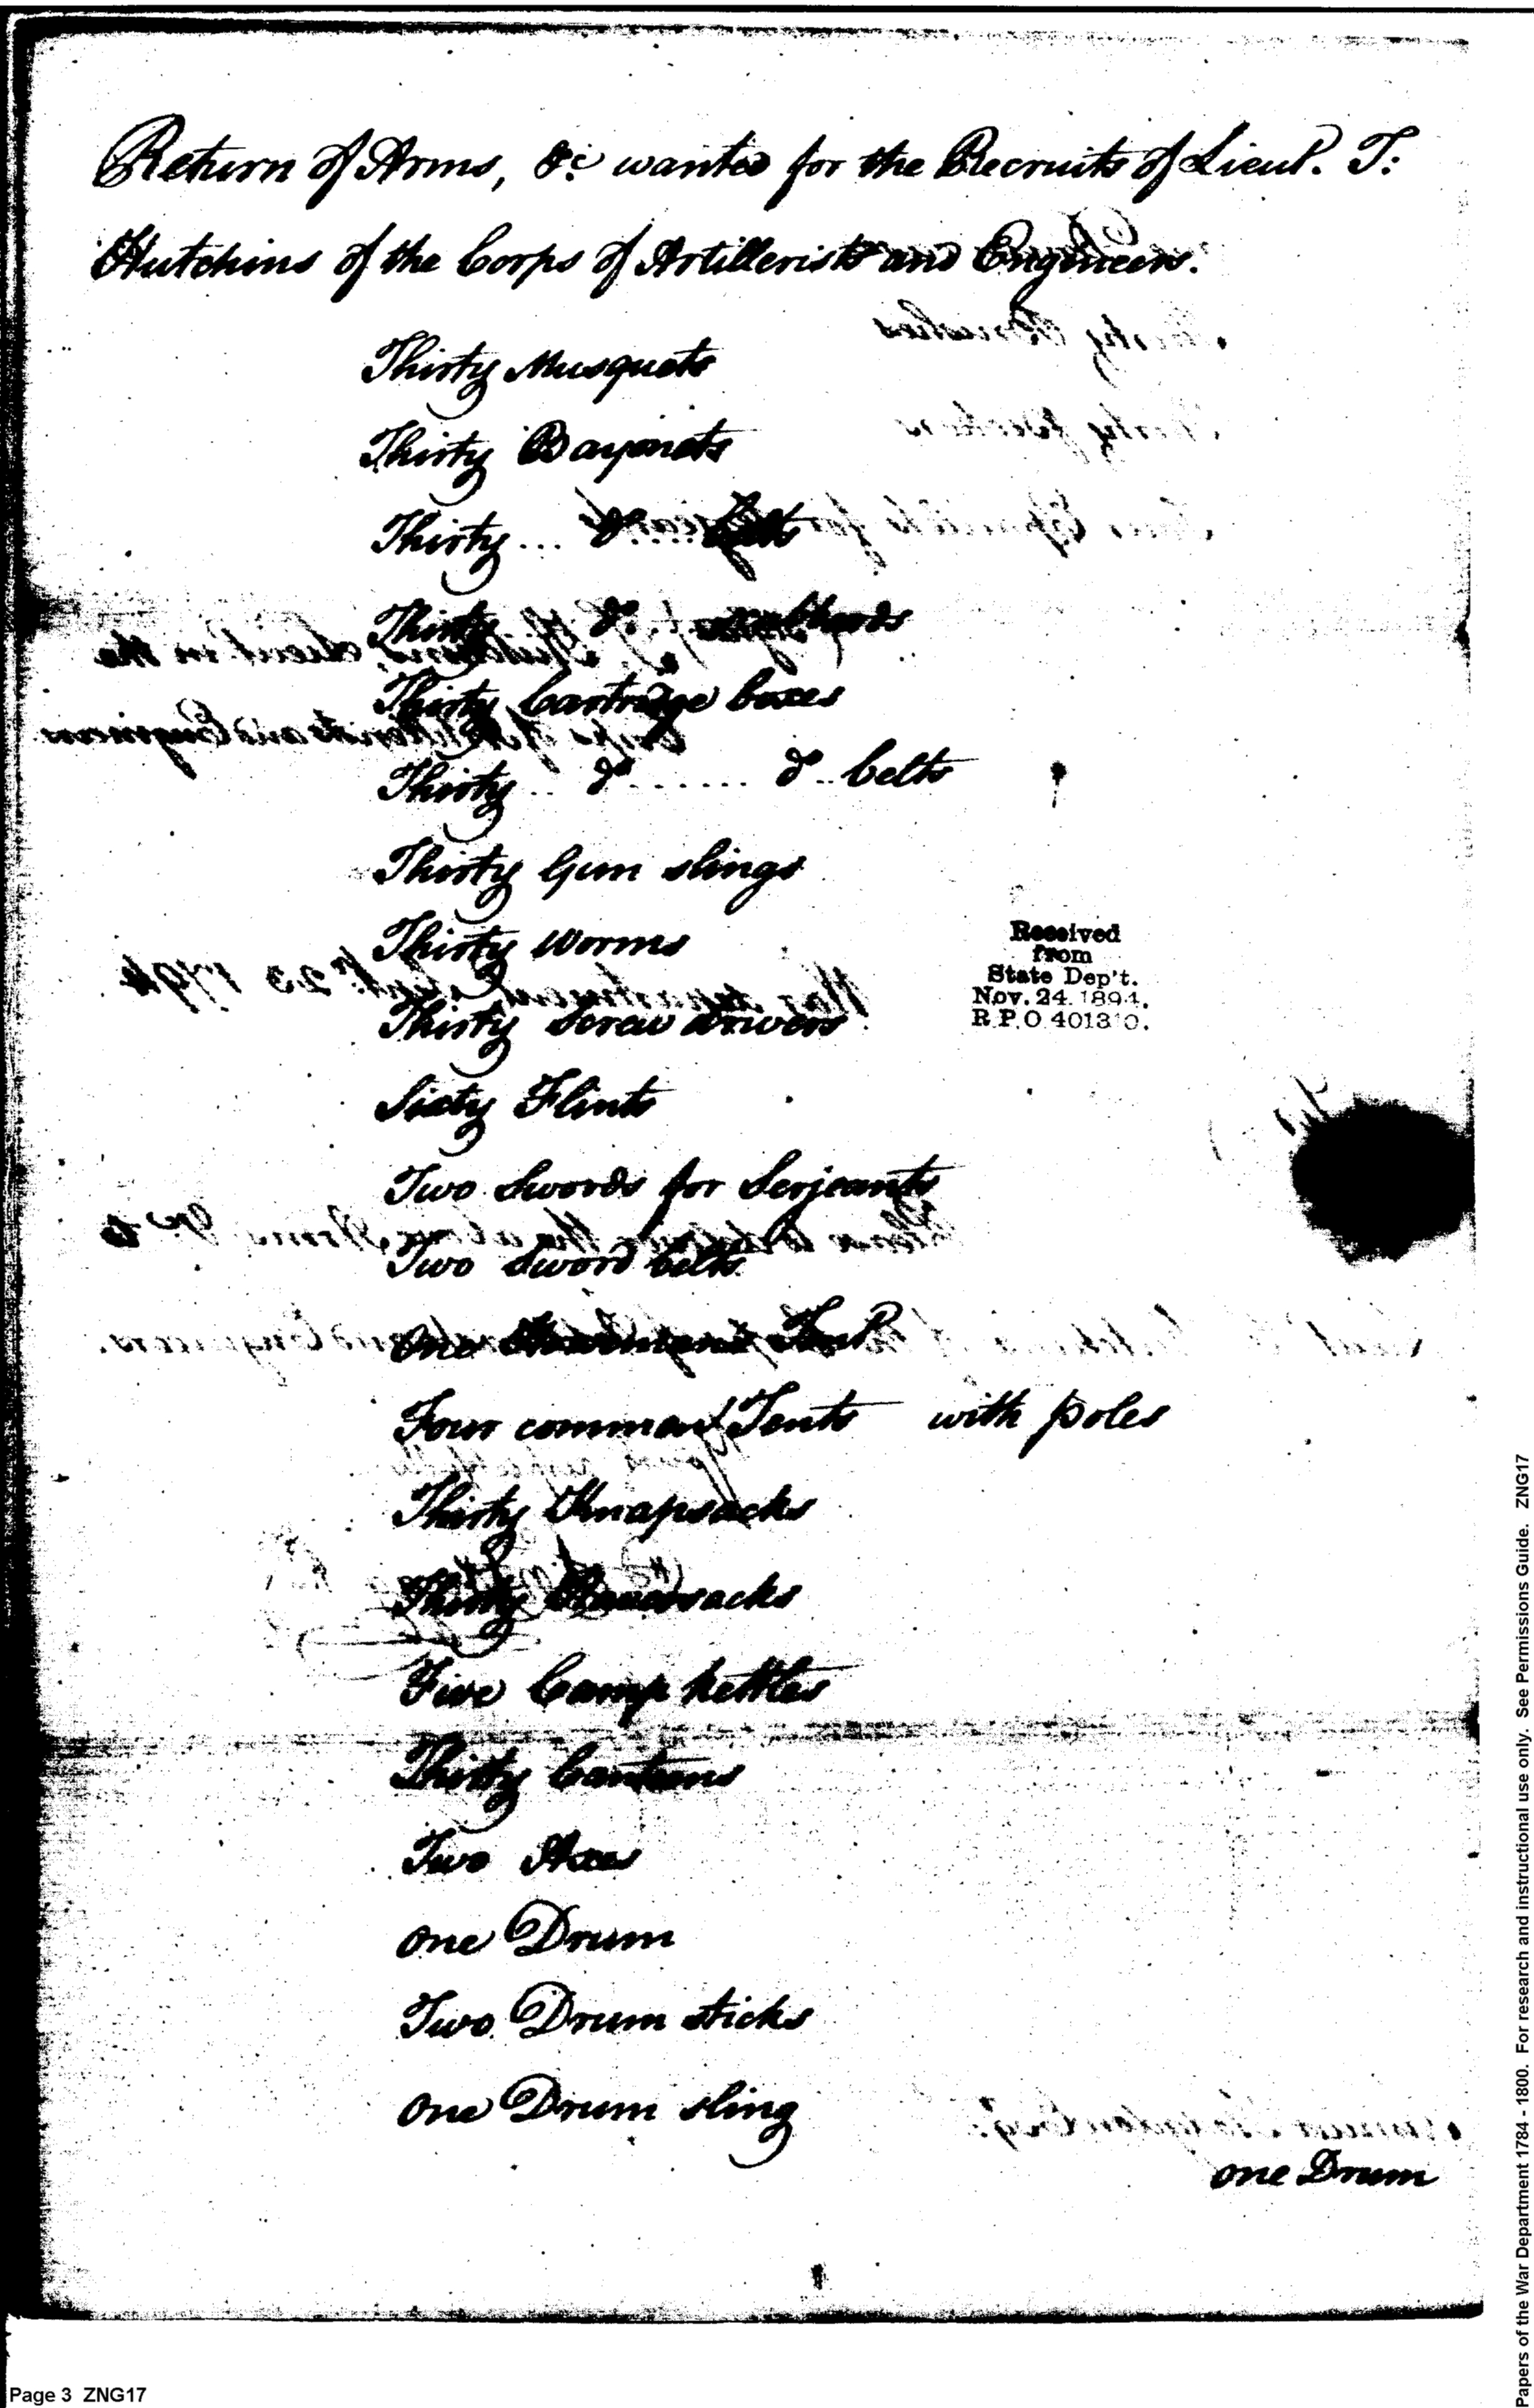 Return of Arms, &c wanted for the Recruits of Lieut. T:
Hutchins of the Corps of Artillerists and Engineers.
Thirty Musquets
Thirty Bayonets
Thirty ... do .... belts
Thirty do scabbards
Thirty Cartridge boxes
Thirty .. do ...... do .. belts
Thirty Gun slings
Thirty Worms
Thirty Screw drivers
Sixty Flints
Two Swords for Serjeants
Two Sword belts
One Tent
Four common Tents with poles
Thirty Knapsacks
Thirty Haversacks
Five Camp kettles
Thirty Canteens
Two Axes
One Drum
Two Drum sticks
One Drum sling
one Drum
Received
from
State Dep't.
Nov. 24. 1894.
R.P.O. 401310.
Page 3 ZNG17
Papers of the War Department 1784 - 1800. For research and instructional use only. See Permissions Guide. ZNG17